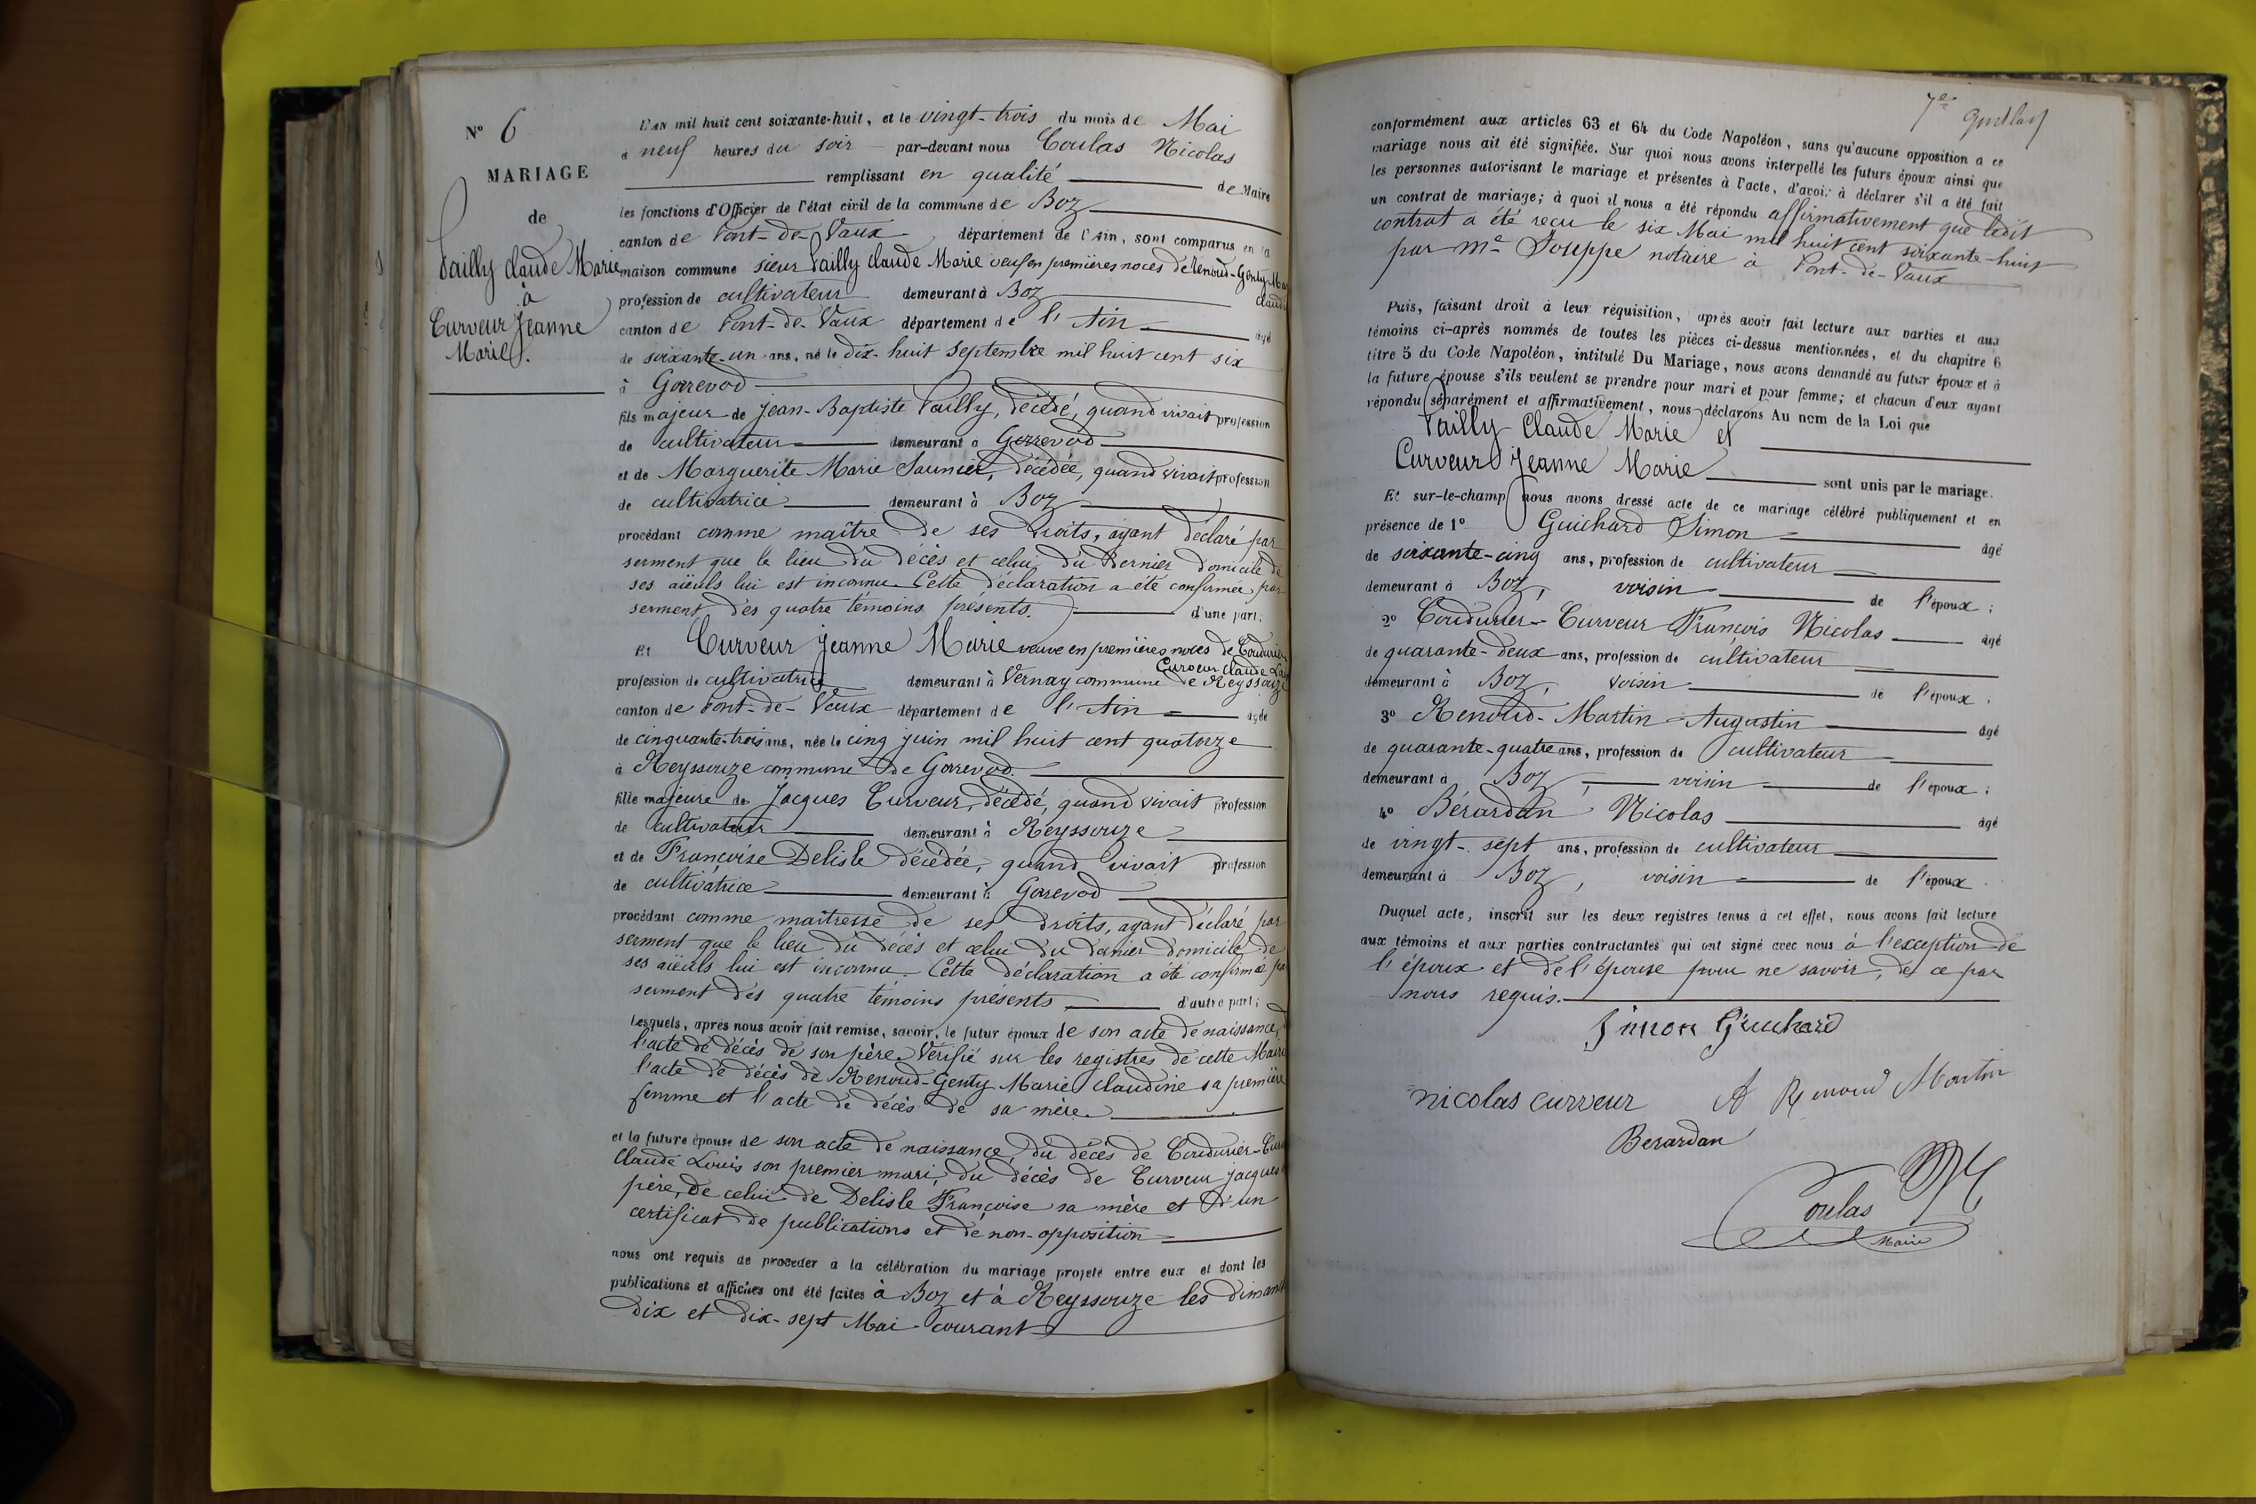 N° 6
MARIAGE
de
Pailly Claude Marie
à
Curveur Jeanne
Marie.
L'AN mil huit cent soixante-huit, et le vingt-trois du mois de Mai
à neuf heures du soir par-devant nous Coulas Nicolas
remplissant en qualité de Maire
les fonctions d'Officier de l'état civil de la commune de Boz
canton de Pont-de-Vaux département de l'Ain, sont comparus en la
maison commune sieur Pailly Claude Marie veuf en premières noces de Renoud-Genty Marie
Claudine
profession de cultivateur demeurant à Boz
canton de Pont-de-Vaux département de l'Ain âgé
de soixante-un ans, né le dix-huit septembre mil huit cent six
à Gorrevod
fils majeur de Jean-Baptiste Pailly, décédé, quand vivait profession
de cultivateur demeurant à Gorrevod
et de Marguerite Marie Saunier, décédée, quand vivait profession
de cultivatrice demeurant à Boz
procédant comme maître de ses droits, ayant déclaré par
serment que le lieu du décès et celui du dernier domicile de
ses aïeuls lui est inconnu. Cette déclaration a été confirmée par
serment des quatre témoins présents. d'une part;
Et Curveur Jeanne Marie veuve en premières noces de Coudurier
Curveur Claude Louis
profession de cultivatrice demeurant à Vernay commune de Reyssouze
canton de Pont-de-Vaux département de l'Ain âgée
de cinquante-trois ans, née le cinq juin mil huit cent quatorze
à Reyssouze commune de Gorrevod.
fille majeure de Jacques Curveur, décédé, quand vivait profession
de cultivateur demeurant à Reyssouze
et de Françoise Delisle décédée, quand vivait profession
de cultivatrice demeurant à Gorrevod
procédant comme maîtresse de ses droits, ayant déclaré par
serment que le lieu du décès et celui du dernier domicile de
ses aïeuls lui est inconnu. Cette déclaration a été confirmée par
serment des quatre témoins présents d'autre part;
Lesquels, après nous avoir fait remise, savoir, le futur époux de son acte de naissance,
l'acte de décès de son père. Vérifié sur les registres de cette Mairie
l'acte de décès de Renoud-Genty Marie Claudine sa première
femme et l'acte de décès de sa mère.
et la future épouse de son acte de naissance, du décès de Coudurier-Curveur
Claude Louis son premier mari, du décès de Curveur Jacques
père, de celui de Delisle Françoise sa mère et d'un
certificat de publications et de non-opposition
nous ont requis de procéder à la célébration du mariage projeté entre eux et dont les
publications et affiches ont été faites à Boz et à Reyssouze les dimanches
dix et dix-sept Mai courant
7e
conformément aux articles 63 et 64 du Code Napoléon, sans qu'aucune opposition à ce
mariage nous ait été signifiée. Sur quoi nous avons interpellé les futurs époux ainsi que
les personnes autorisant le mariage et présentes à l'acte, d'avoir à déclarer s'il a été fait
un contrat de mariage; à quoi il nous a été répondu affirmativement que ledit
contrat a été reçu le six Mai mil huit cent soixante-huit
par Me Souppe notaire à Pont-de-Vaux
Puis, faisant droit à leur réquisition, après avoir fait lecture aux parties et aux
témoins ci-après nommés de toutes les pièces ci-dessus mentionnées, et du chapitre 6
titre 5 du Code Napoléon, intitulé Du Mariage, nous avons demandé au futur époux et à
la future épouse s'ils veulent se prendre pour mari et pour femme; et chacun d'eux ayant
répondu séparément et affirmativement, nous déclarons Au nom de la Loi que
Pailly Claude Marie et
Curveur Jeanne Marie sont unis par le mariage.
Et sur-le-champ nous avons dressé acte de ce mariage célébré publiquement et en
présence de 1° Guichard Simon âgé
de soixante-cinq ans, profession de cultivateur
demeurant à Boz, voisin de l'époux;
2° Coudurier-Curveur François Nicolas âgé
de quarante-deux ans, profession de cultivateur
demeurant à Boz, voisin de l'époux.
3° Renoud-Martin Augustin âgé
de quarante-quatre ans, profession de cultivateur
demeurant à Boz, voisin de l'époux;
4° Bérardan Nicolas âgé
de vingt-sept ans, profession de cultivateur
demeurant à Boz, voisin de l'époux.
Duquel acte, inscrit sur les deux registres tenus à cet effet, nous avons fait lecture
aux témoins et aux parties contractantes qui ont signé avec nous à l'exception de
l'époux et de l'épouse pour ne savoir, de ce par
nous requis.
Simon Guichard
nicolas curveur A Renoud Martin
Berardan
Coulas
Maire